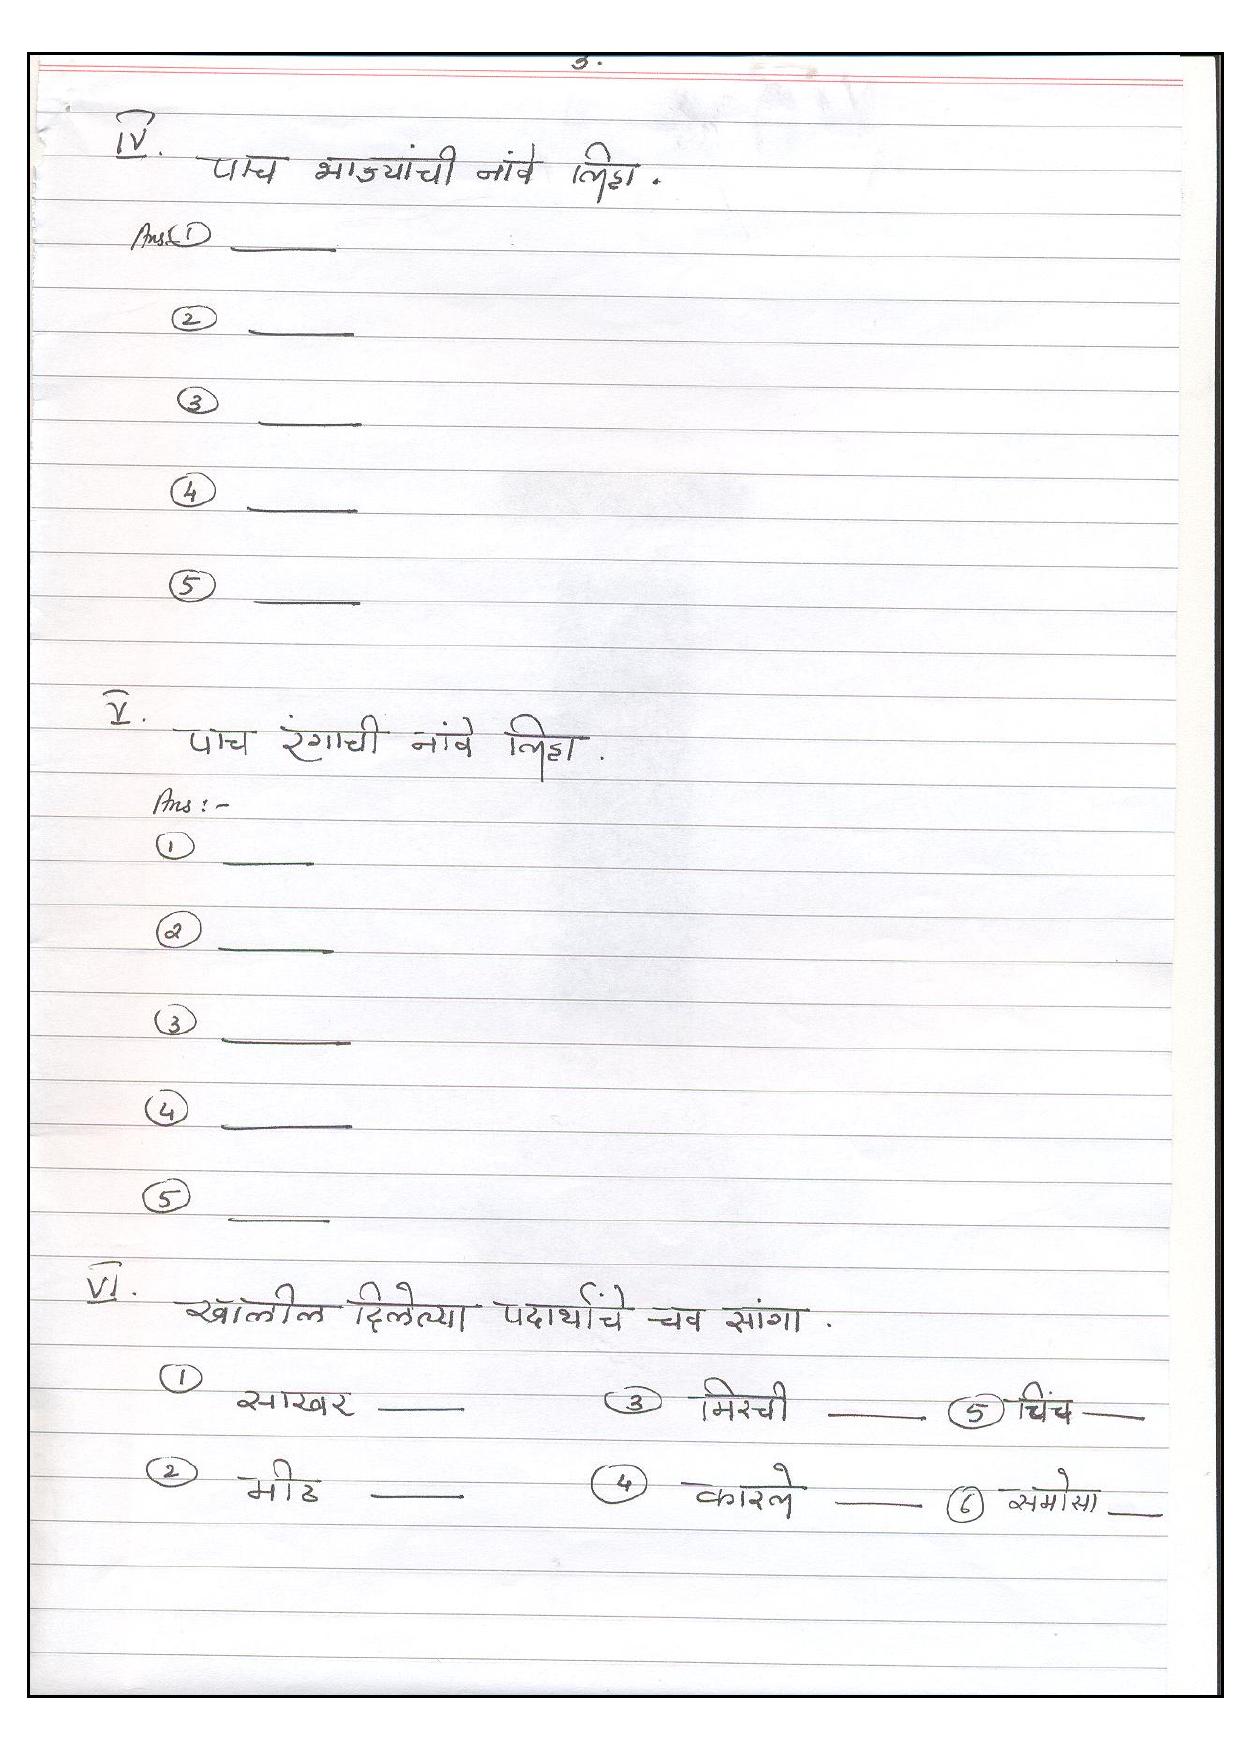 3.
IV.
पाच भाज्यांची नांवे लिहा.
Ans: ① ____
② ____
③ ____
④ ____
⑤ ____
V.
पाच रंगाची नांवे लिहा.
Ans :-
① ____
② ____
③ ____
④ ____
⑤ ____
VI.
खालील दिलेल्या पदार्थांचे चव सांगा.
① साखर ____ ③ मिरची ____ ⑤ चिंच ____
② मीठ ____ ④ कारले ____ ⑥ समोसा ____